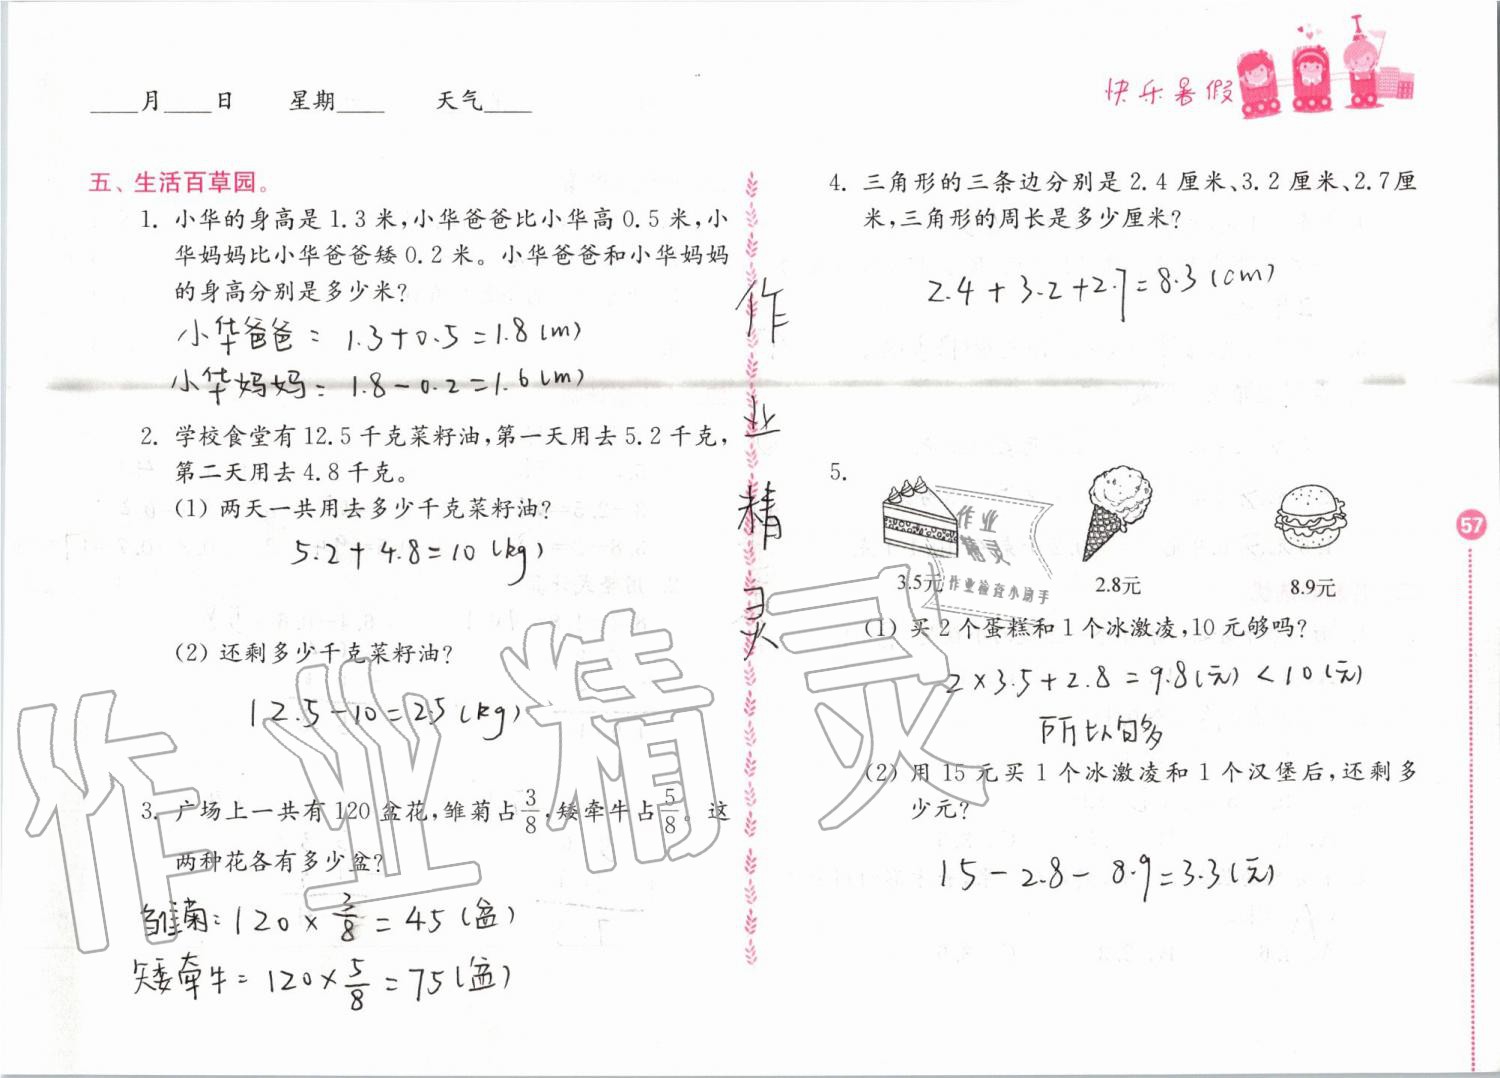 ____月____日 星期____ 天气____
快乐暑假
五、生活百草园。
1. 小华的身高是1.3米,小华爸爸比小华高0.5米,小
华妈妈比小华爸爸矮0.2米。小华爸爸和小华妈妈
的身高分别是多少米?
小华爸爸: 1.3+0.5=1.8(m)
小华妈妈: 1.8-0.2=1.6(m)
2. 学校食堂有12.5千克菜籽油,第一天用去5.2千克,
第二天用去4.8千克。
(1) 两天一共用去多少千克菜籽油?
5.2+4.8=10(kg)
(2) 还剩多少千克菜籽油?
12.5-10=2.5(kg)
3. 广场上一共有120盆花,雏菊占3/8,矮牵牛占5/8。这
两种花各有多少盆?
雏菊:120×3/8=45(盆)
矮牵牛=120×5/8=75(盆)
作业精灵
作业精灵
4. 三角形的三条边分别是2.4厘米、3.2厘米、2.7厘
米,三角形的周长是多少厘米?
2.4+3.2+2.7=8.3(cm)
5.
作业
精灵
作业检查小助手
3.5元 2.8元 8.9元
(1) 买2个蛋糕和1个冰激凌,10元够吗?
2×3.5+2.8=9.8(元)<10(元)
所以够
(2) 用15元买1个冰激凌和1个汉堡后,还剩多
少元?
15-2.8-8.9=3.3(元)
57